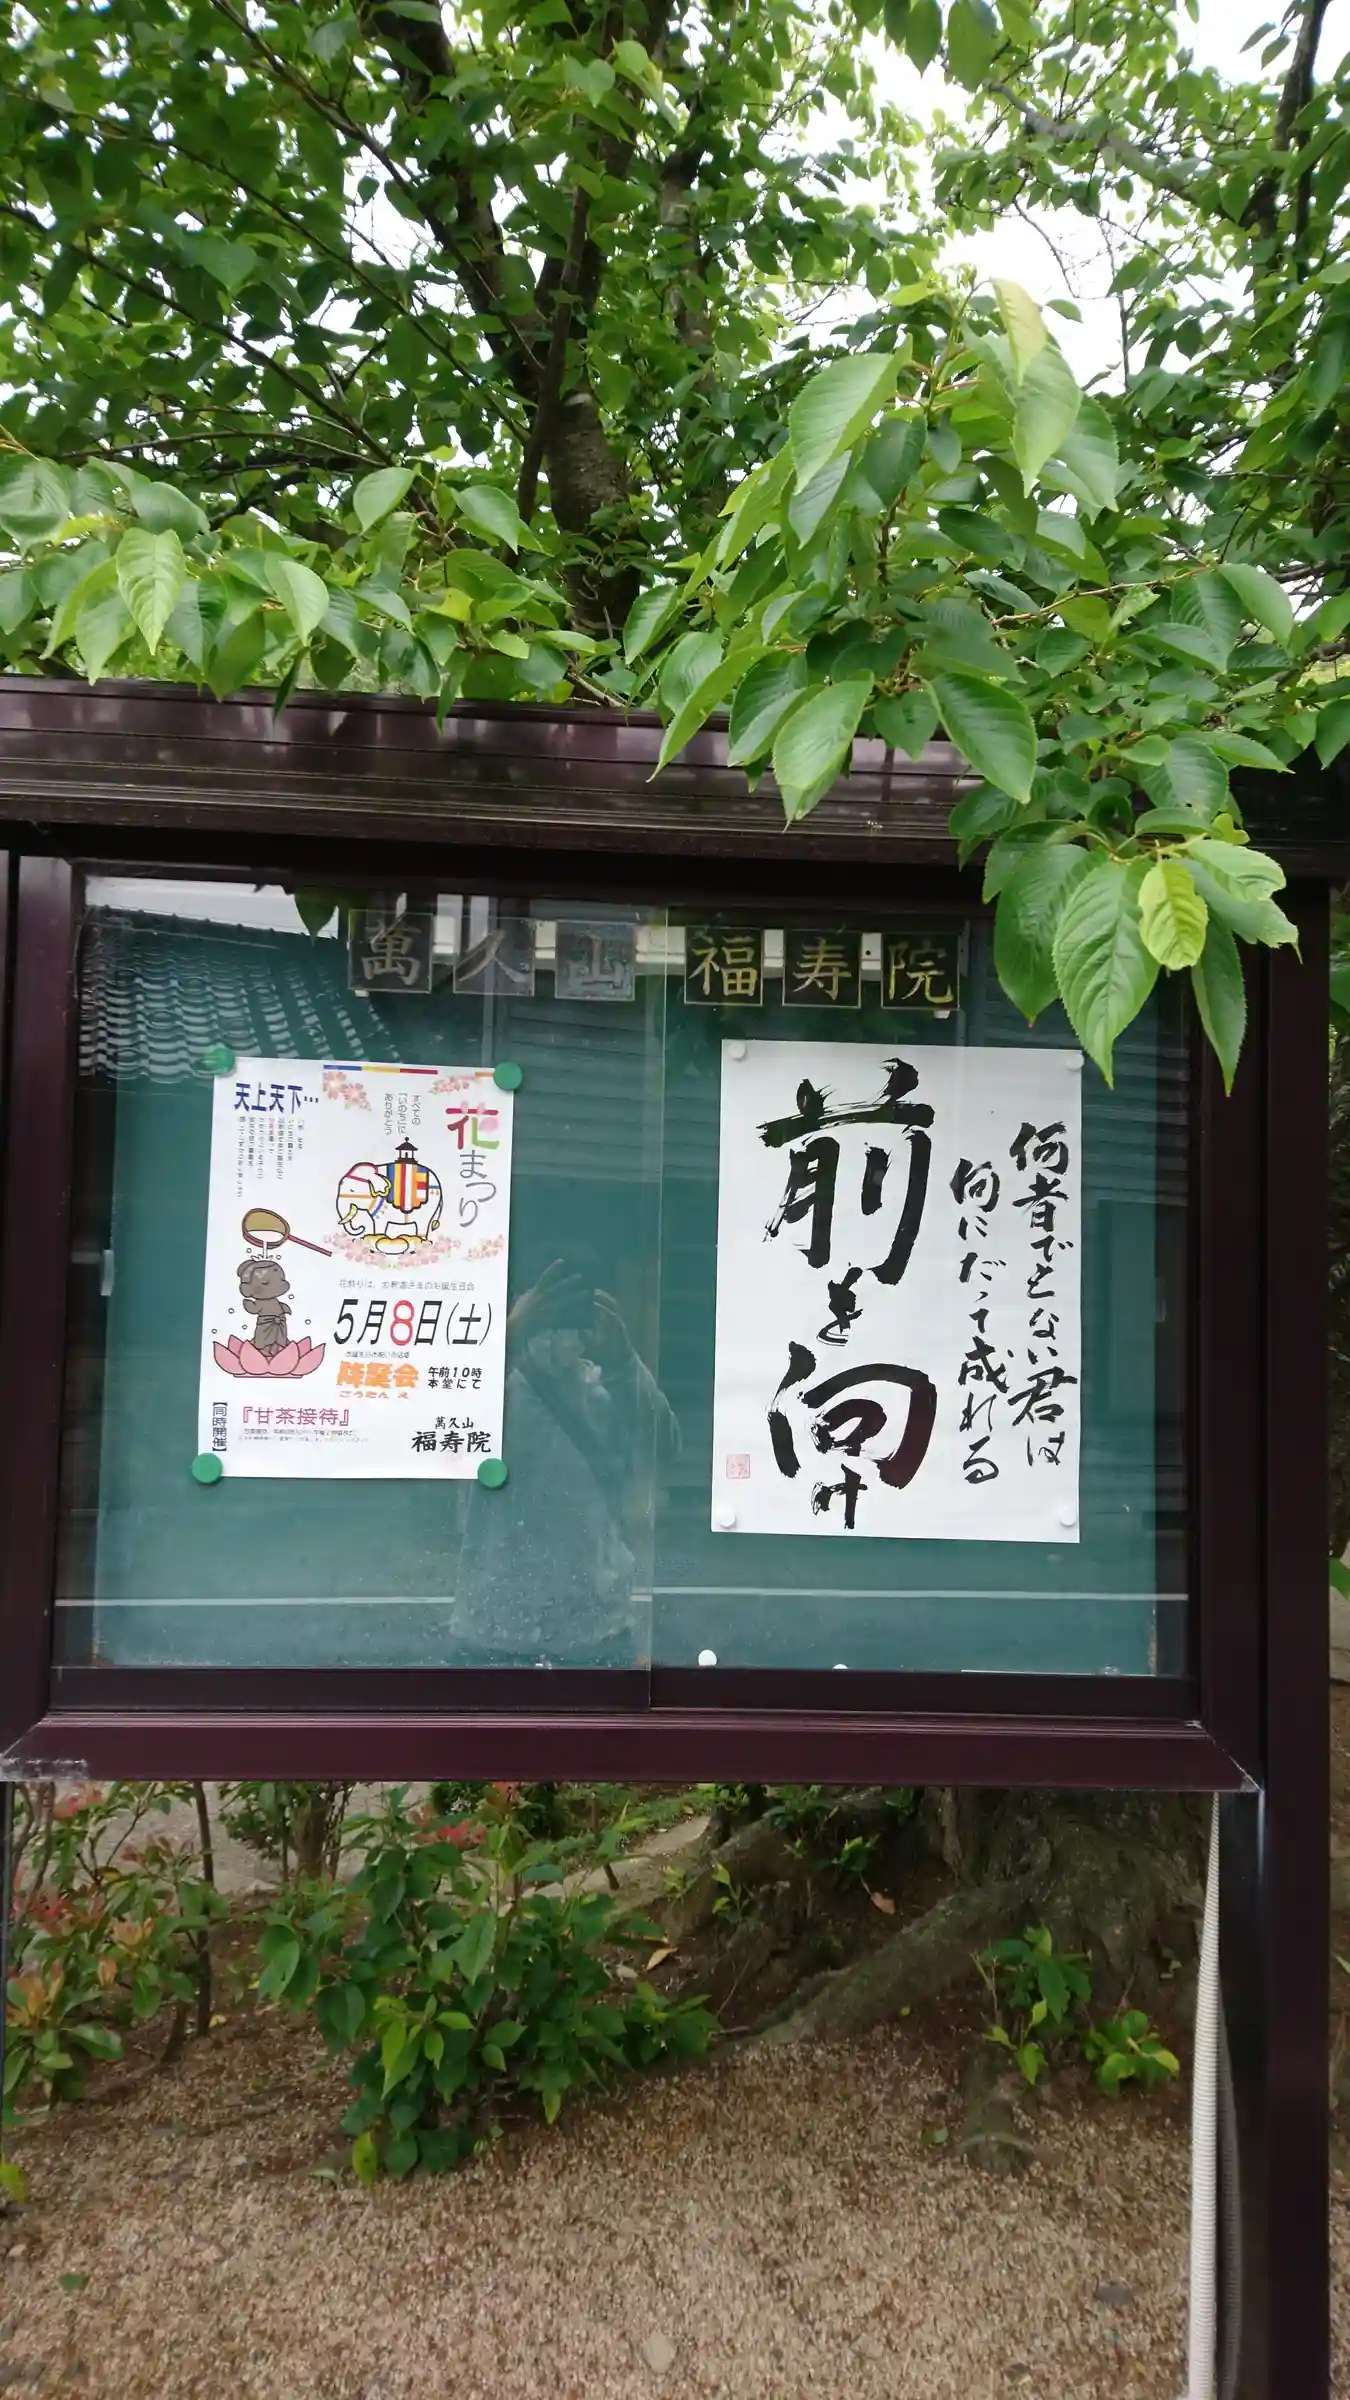 萬久山 福寿院
天上天下…
花まつり
すべての
「いのち」に
ありがとう
花祭りは、お釈迦さまのお誕生日会
5月8日(土)
降誕会
午前10時
本堂にて
【同時開催】
『甘茶接待』
萬久山
福寿院
何者でもない君は
何にだって成れる
前を向け